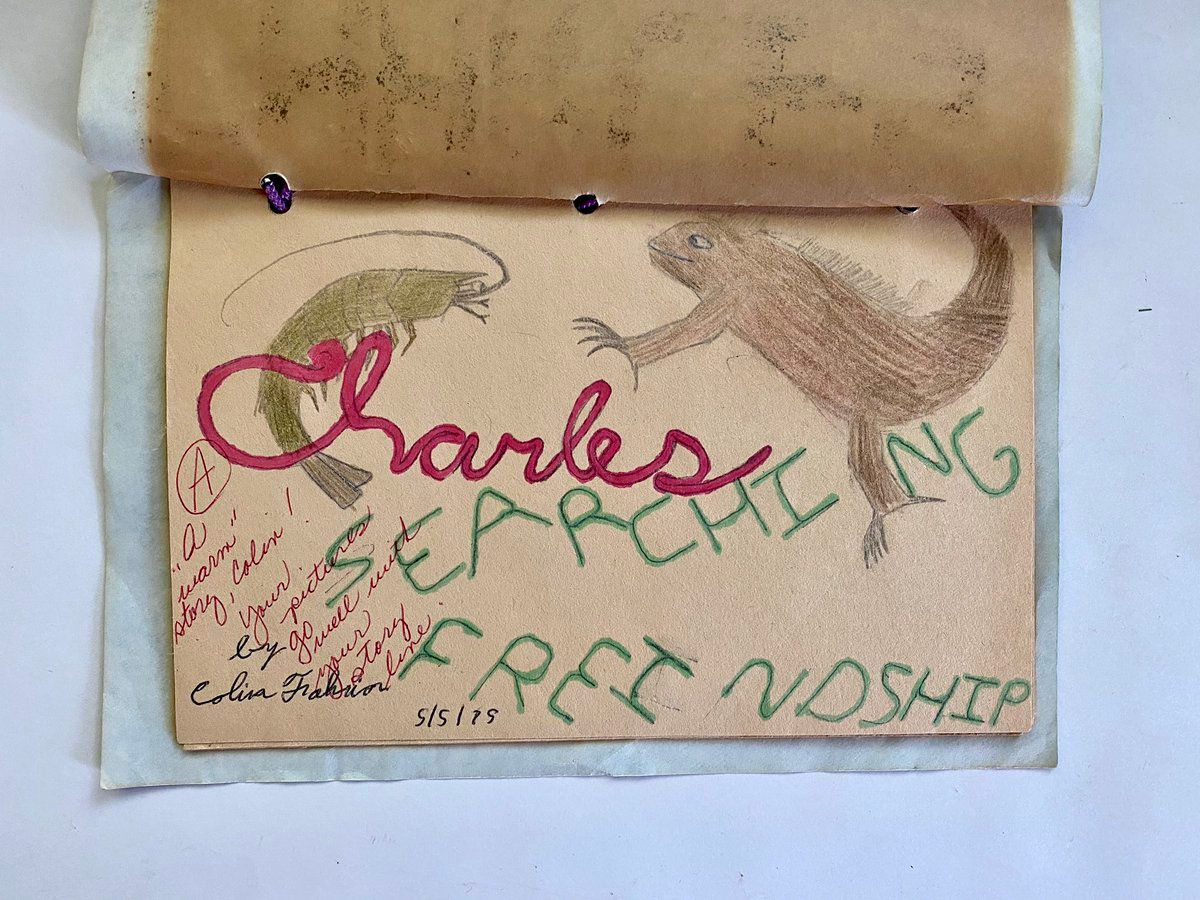 Charles
SEARCHING
FREINDSHIP
A
"A
warm"
story, Colin!
Your
pictures
go well with
your
story
line.
by
Colin Fahrion